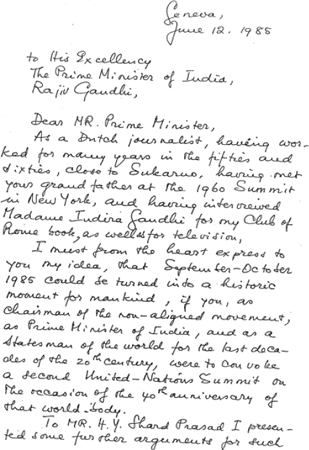 Geneva,
June 12. 1985
to His Excellency
The Prime Minister of India,
Rajiv Gandhi,
Dear MR. Prime Minister,
As a Dutch journalist, having wor-
ked for many years in the fifties and
sixties, close to Sukarno, having met
your grand father at the 1960 Summit
in New York, and having interviewed
Madame Indira Gandhi for my Club of
Rome book, as well as for television,
I must from the heart express to
you my idea, that September-October
1985 could be turned into a historic
moment for mankind, if you, as
chairman of the non-aligned movement,
as Prime Minister of India, and as a
statesman of the world for the last deca-
des of the 20th century, were to convoke
a second United-Nations Summit on
the occasion of the 40th anniversary of
that world-body.
To MR. H.Y. Shard Prasad I presen-
ted some further arguments for such